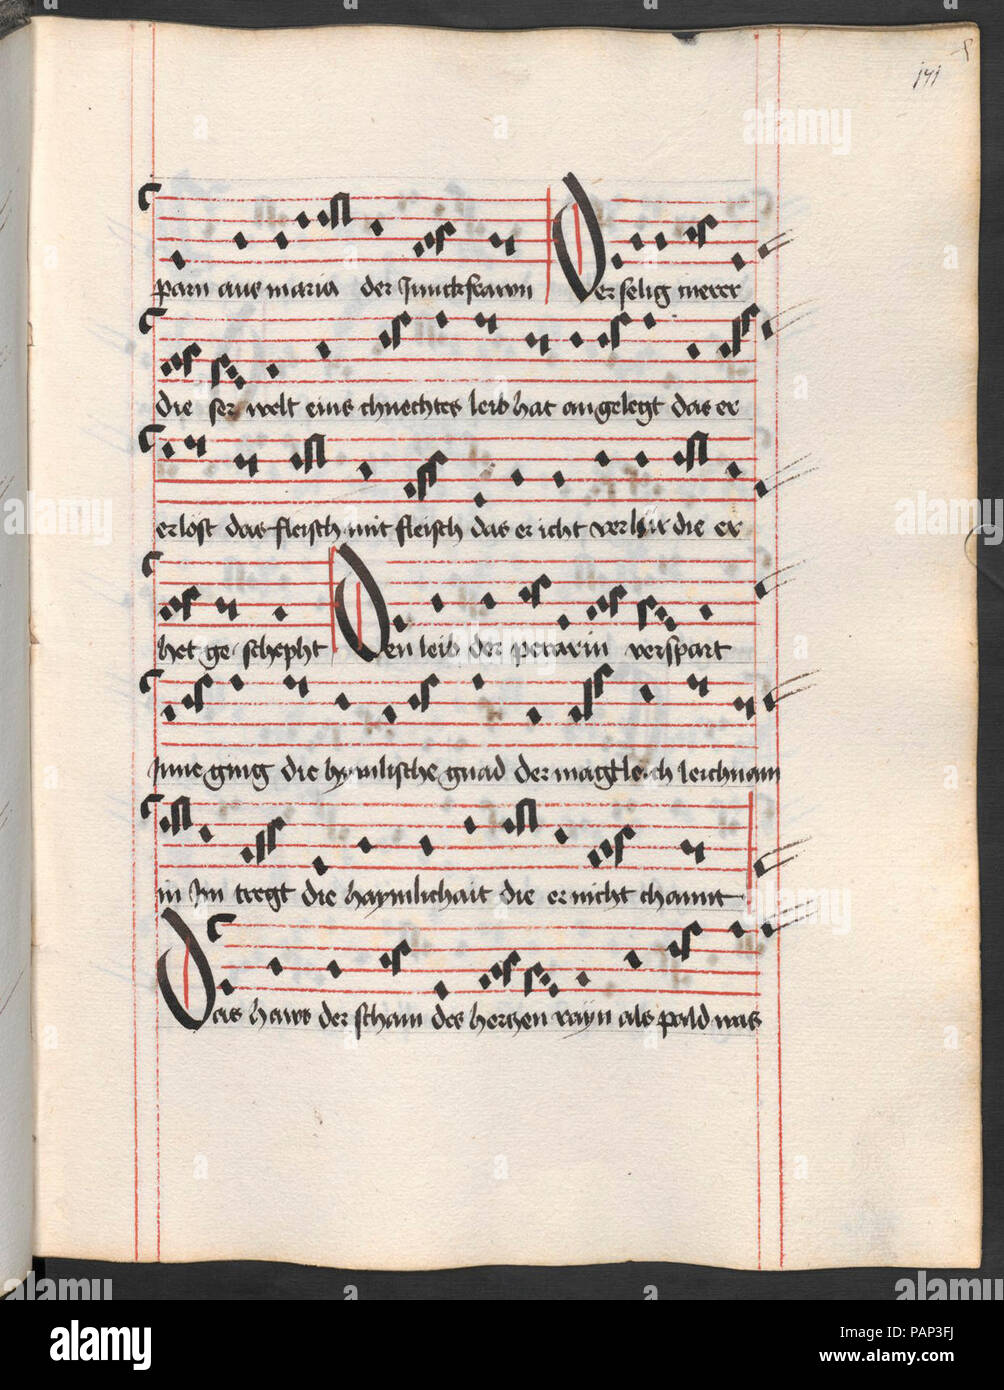 171
parn aus maria der Junckfrawn Der selig merer
die ser welt eins chnechtes leib hat angelegt das er
erlost das fleisch mit fleisch das er icht verlür die er
het ge schepht Den leib der perarin verspart
Inne ging die hymlische gnad der magtleich leichnam
in Im tregt die haymlichait die er nicht channt
Das haws der scham des herczen rayn als pald was
alamy
PAP3FJ
www.alamy.com